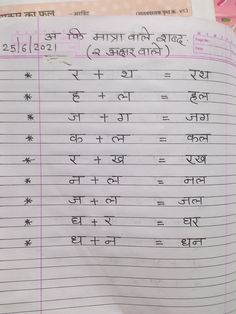 25/6/2021
अ कि मात्रा वाले शब्द
(२ अक्षर वाले)
* र + थ = रथ
* ह + ल = हल
* ज + ग = जग
* क + ल = कल
* र + ख = रख
* न + ल = नल
* ज + ल = जल
* घ + र = घर
* ध + न = धन